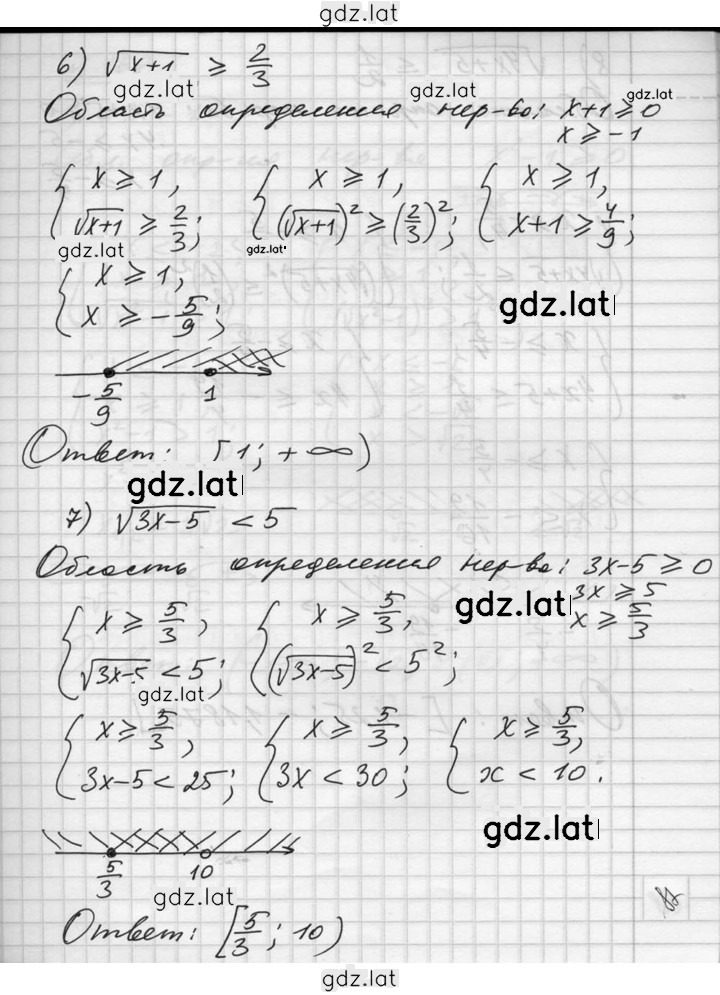 gdz.lat
6) √(x+1) ≥ 2/3
gdz.lat gdz.lat gdz.lat
Область определения нер-ва: x+1 ≥ 0
x ≥ -1
{ x ≥ 1, { x ≥ 1, { x ≥ 1,
√(x+1) ≥ 2/3; (√(x+1))² ≥ (2/3)²; x+1 ≥ 4/9;
gdz.lat gdz.lat
{ x ≥ 1,
x ≥ -5/9;
gdz.lat
-5/9 1
Ответ: [1; +∞)
gdz.lat
7) √(3x-5) < 5
Область определения нер-ва: 3x-5 ≥ 0
gdz.lat 3x ≥ 5
x ≥ 5/3
{ x ≥ 5/3, { x ≥ 5/3,
√(3x-5) < 5; (√(3x-5))² < 5²;
gdz.lat
{ x ≥ 5/3, { x ≥ 5/3, { x ≥ 5/3,
3x-5 < 25; 3x < 30; x < 10.
gdz.lat
5/3 10
gdz.lat
Ответ: [5/3; 10)
gdz.lat